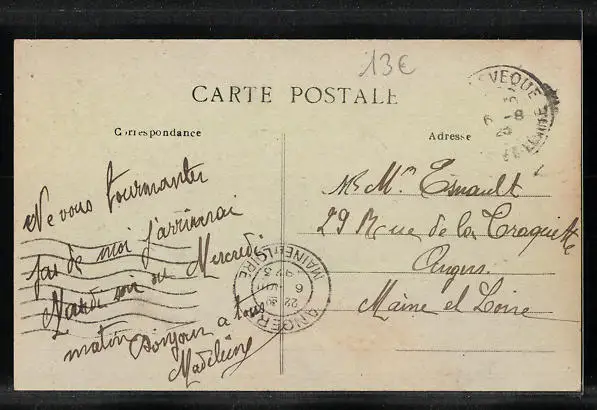 13€
CARTE POSTALE
Correspondance
Adresse
EVEQUE
6 -8
Ne vous tourmenter
pas de moi j'arriverai
Mardi soir ou Mercredi
matin Bonjour a tous
Madeleine
ANGERS
22 30
6 VIII
MAINE-ET-LOIRE
Mr Mme Esnault
29 Rue de la Traquette
Angers
Maine et Loire